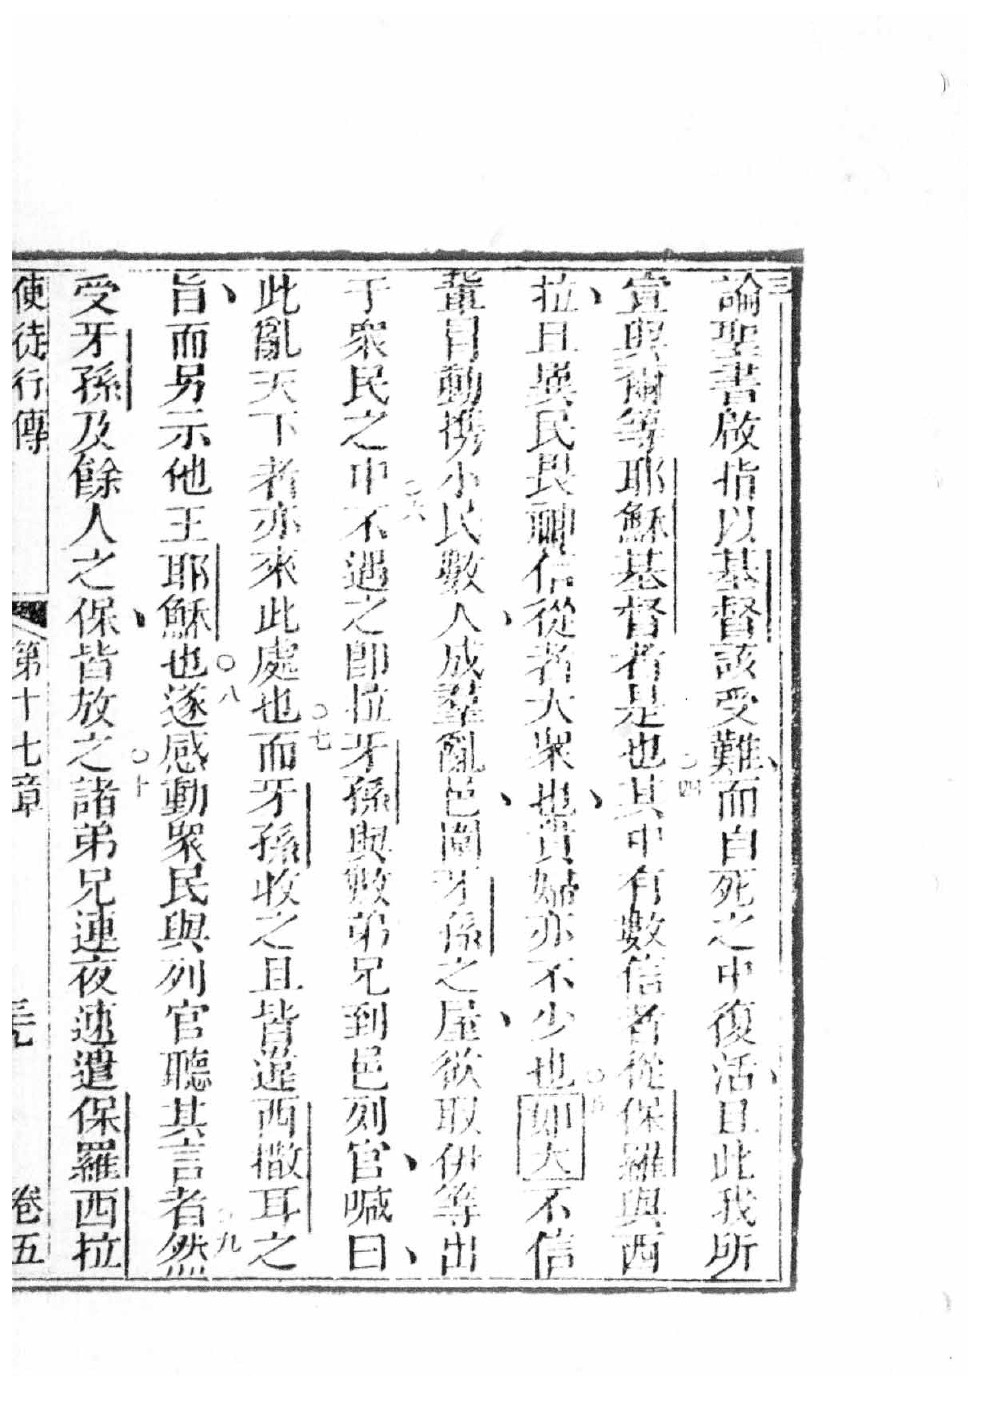 論聖書啟指以基督該受難而自死之中復活且此我所
宣與爾等耶穌基督者是也○四其中有數信者從保羅與西
拉且異民畏神信從者大眾也貴婦亦不少也○五如大不信
輩冒動携小民數人成羣亂邑圍牙孫之屋欲取伊等出
于眾民之中○六不遇之即拉牙孫與數弟兄到邑列官喊曰
此亂天下者亦來此處也○七而牙孫收之且皆違西撒耳之
旨而另示他王耶穌也○八遂感動眾民與列官聽其言者○九然
受牙孫及餘人之保皆放之○十諸弟兄連夜速遣保羅西拉
使徒行傳 第十七章 卷五